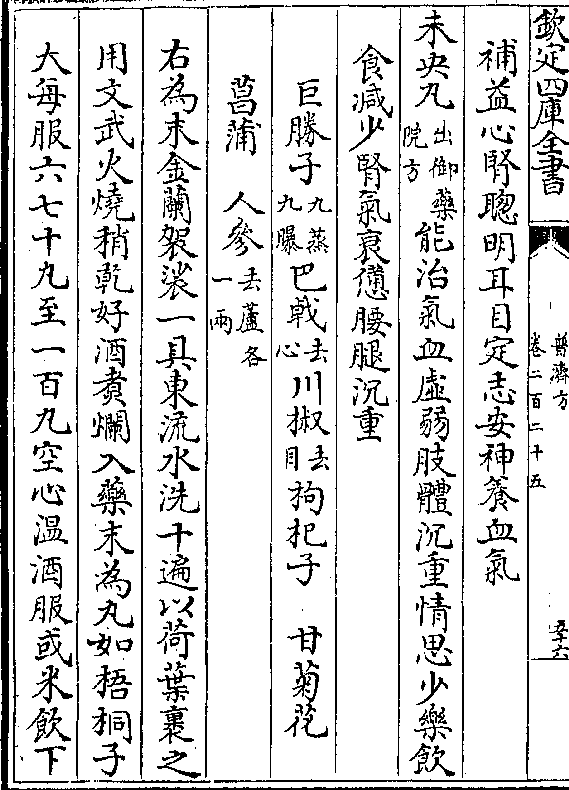 欽定四庫全書
普濟方
卷二百二十五
五十六
補益心腎聰明耳目定志安神養血氣
未央丸出御藥院方能治氣血虛弱肢體沉重情思少樂飲
食減少腎氣衰憊腰腿沉重
巨勝子九蒸九曝巴戟去心川椒去目枸杞子 甘菊花
菖蒲 人參去蘆各一兩
右為末金蘭袈裟一具東流水洗十遍以荷葉裹之
用文武火燒稍乾好酒煑爛入藥末為丸如梧桐子
大每服六七十丸至一百丸空心溫酒服或米飲下